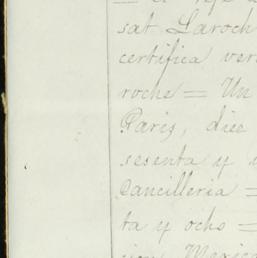 sat Laroch
certifica ver
roche = Un
Paris, diez
sesenta y u
Cancilleria =
ta y ocho =